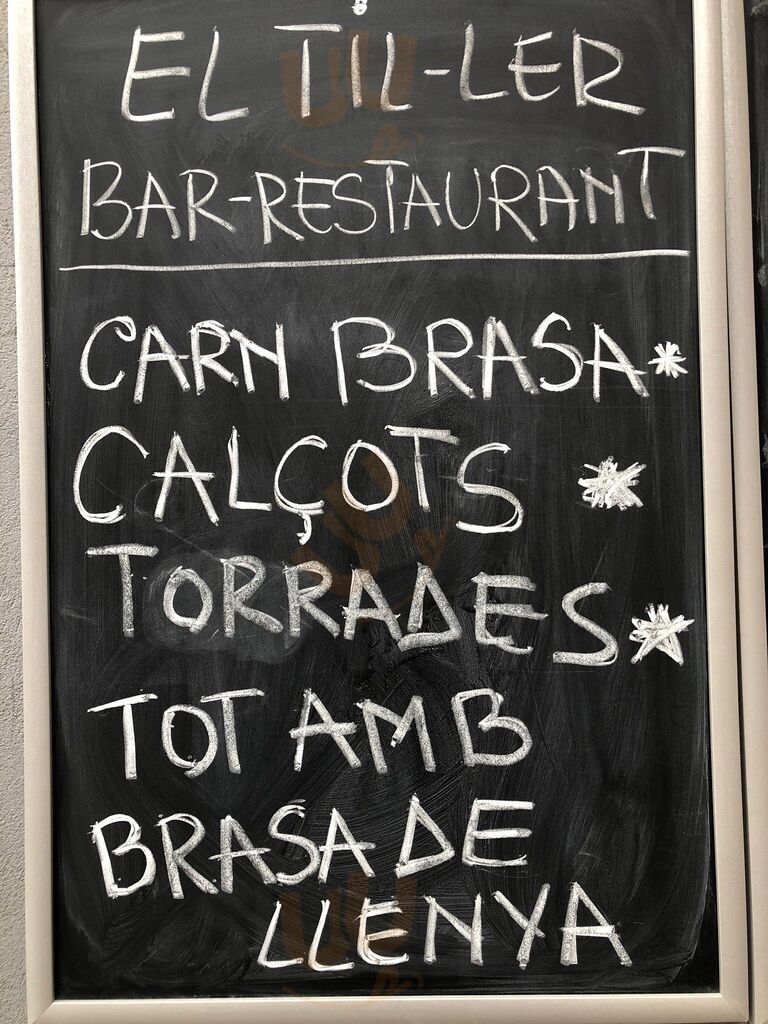 EL TIL-LER
BAR-RESTAURANT
CARN BRASA*
CALÇOTS *
TORRADES*
TOT AMB
BRASA DE
LLENYA